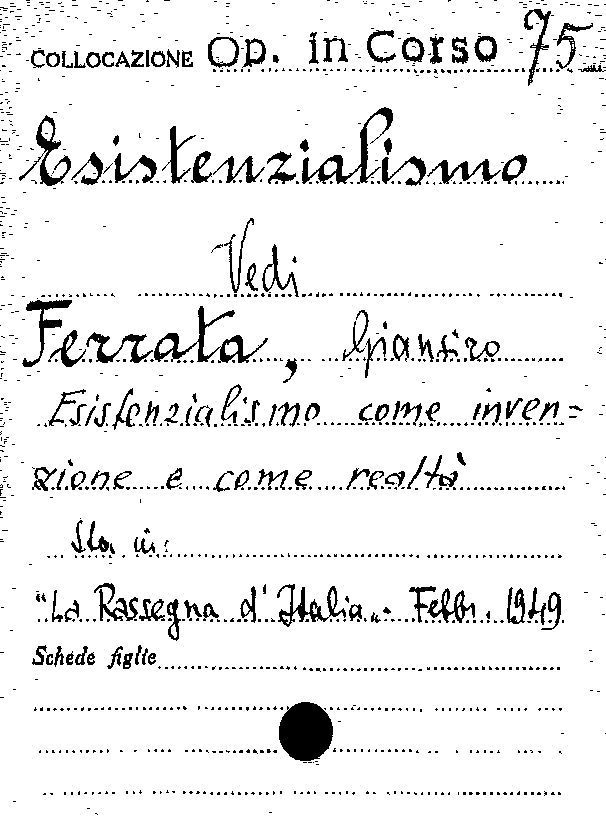 COLLOCAZIONE Op. in Corso 75
Esistenzialismo
Vedi
Ferrata, Giansiro
Esistenzialismo come inven=
zione e come realtà
Sta in:
"La Rassegna d'Italia„. Febbr. 1949
Schede figlie